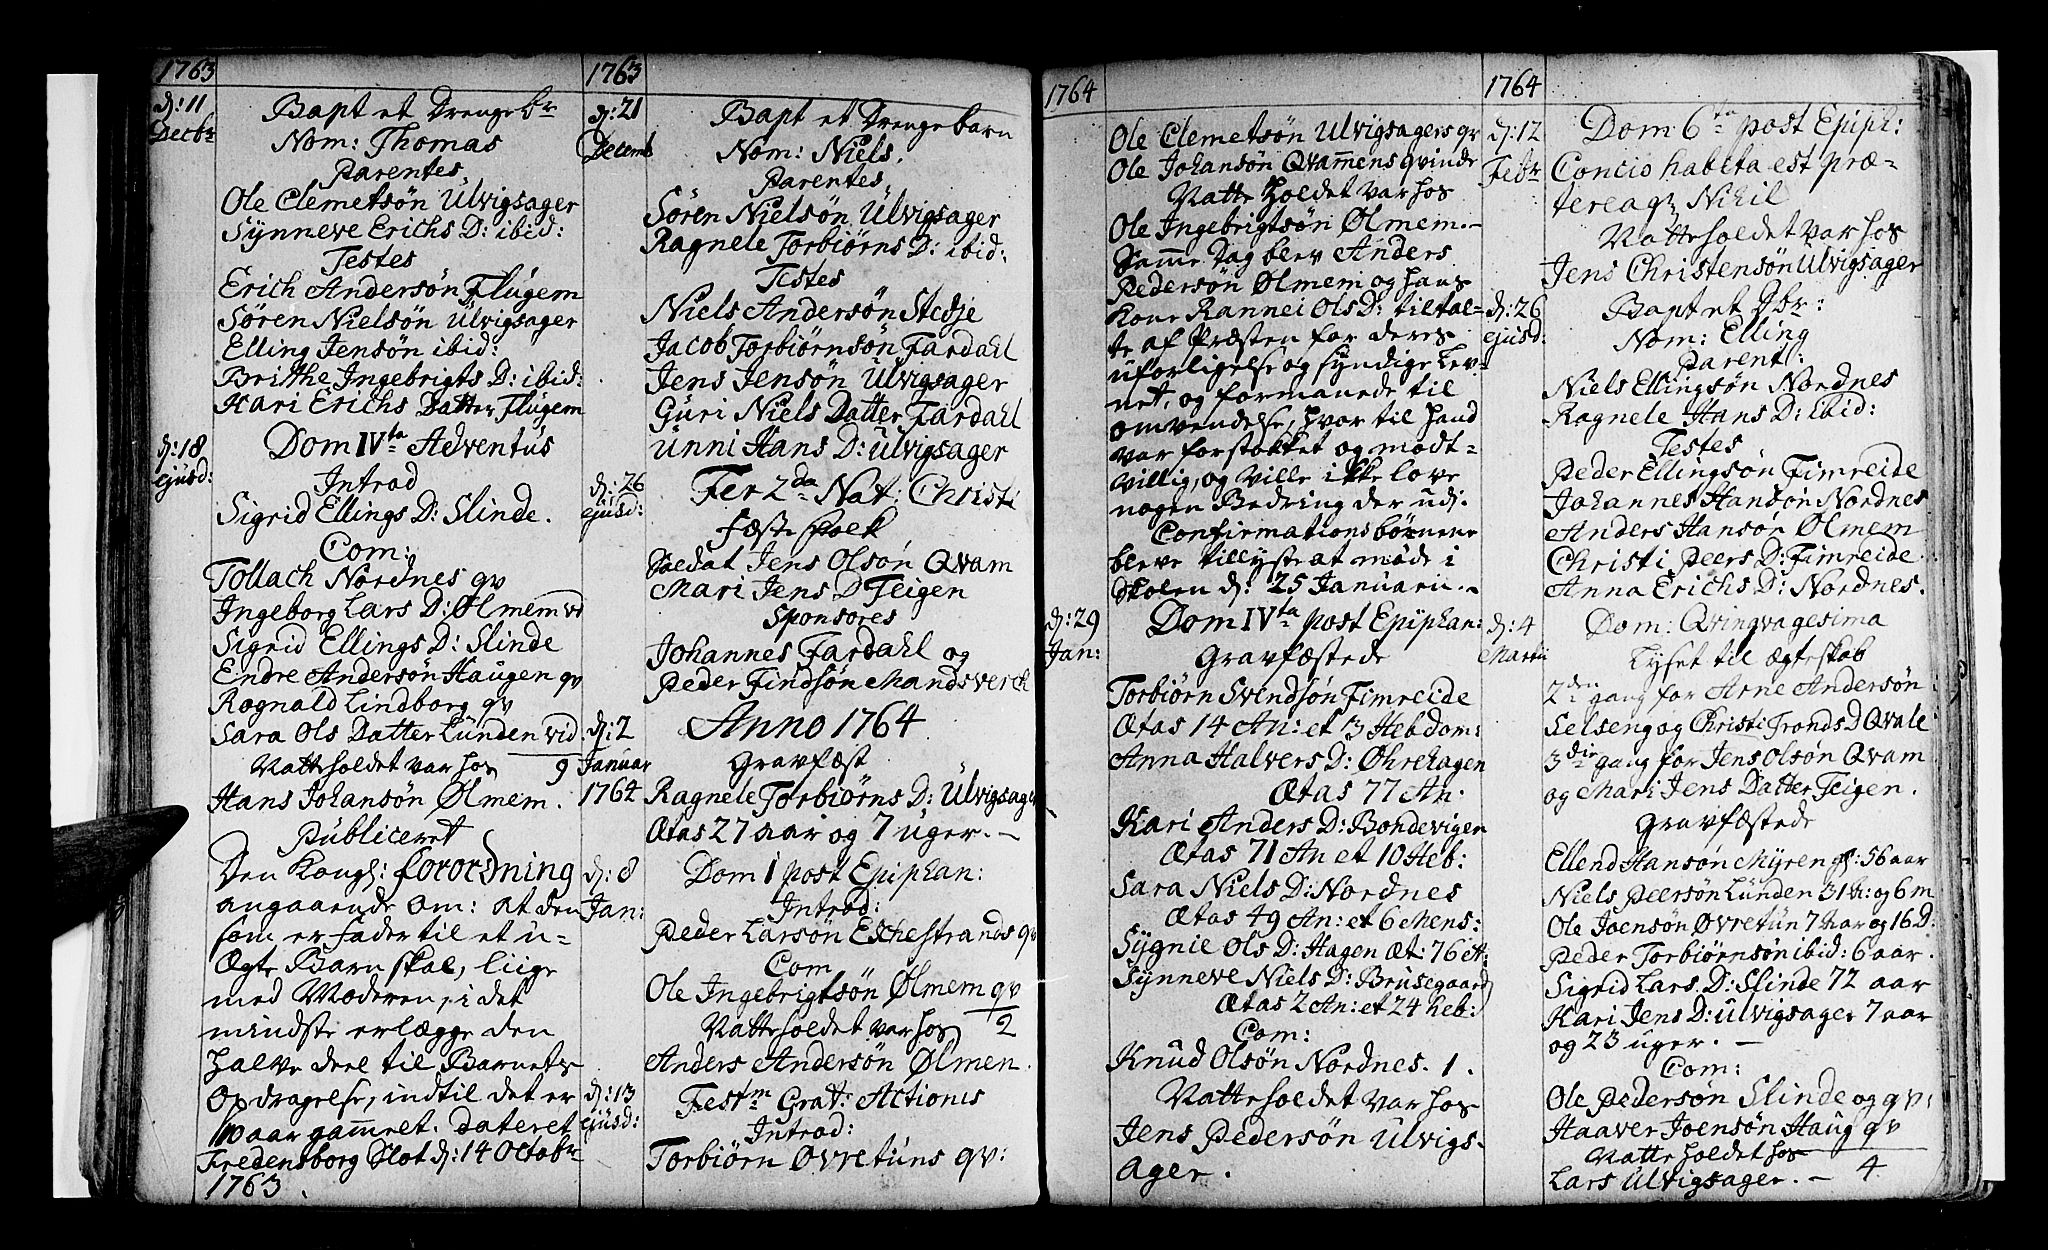 1763
d: 11
Decbr
Bapt et Drengebr
Nom: Thomas
Parentes
Ole Clemetsøn Ulvigsager
Synneve Erichs D: ibid:
Testes
Erich Andersøn Flugem
Søren Nielsøn Ulvigsager
Elling Jensøn ibid:
Brithe Ingebrigts D: ibid:
Kari Erichs Datter Flugem
d: 18
ejusd:
Dom IVta Adventus
Introd
Sigrid Ellings D: Slinde.
Com:
Tollach Nordnes qv
Ingeborg Lars D: Ølmem vd
Sigrid Ellings D: Slinde
Endre Andersøn Haugen qv
Rognald Lindborg qv
Sara Ols Datter Lunden vid
9
Natteholdet var hos
Hans Johansøn Ølmem.
Publiceret
Den Kongl: forordning
angaaende om: at den
som er fader til et u-
Ægte Barn skal, liige
med Moderen, i det
mindste erlægge den
halve deel til Barnets
Opdragelse, indtil det er
10 aar gammel. dateret
Fredensborg Slot d: 14 Octobr
1763.
1763
d: 21
Decemb
Bapt et Drengebarn
Nom: Niels.
Parentes
Søren Nielsøn Ulvigsager
Ragnele Torbiørns D: ibid:
Testes
Niels Andersøn Stedje
Jacob Torbiørnsøn Fardahl
Jens Jensøn Ulvigsager
Guri Niels Datter Fardahl
Unni Hans D: Ulvigsager
d: 26
ejusd:
Fer 2da Nat: Christi
fæste folk
Soldat Jens Olsøn Qvam
Mari Jens D Teigen
Sponsores
Johannes Fardahl og
Peder Findsøn Mandsverch
Anno 1764
d: 2
Januar
1764
Gravfæst
Ragnele Torbiørns D: Ulvigsager
Ætas 27 aar og 7 uger. -
d: 8
Jan:
Dom 1 post Epiphan:
Introd:
Peder Larsøn Eschestrands qv
Com
Ole Ingebrigtsøn Ølmem qv
2
Natteholdet var hos
Anders Andersøn Ølmen.
d: 13
ejusd:
Festm Grat: Actionis
Introd:
Torbiørn Øvretuns qv:
1764
Ole Clemetsøn Ulvigsagers qv
Ole Johansøn Qvammens qvinde
Natteholdet var hos
Ole Ingebrigtsøn Ølmem. -
Samme Dag blev Anders
Pedersøn Ølmem og hans
Kone Rannei Ols D: tiltal-
te af Præsten for deres
uforligelse og syndige Lev-
net, og formanede til
omvendelse, hvor til hand
var forstokket og modt-
villig, og ville ikke love
nogen Bedring der udj.
Confirmationsbørnene
bleve tillyste at møde i
Skolen d: 25 Januarii. -
d: 29
Jan:
Dom IVta post Epiphan:
Gravfæstede
Torbiørn Svendsøn Fimreide
Ætas 14 An: et 3 Hebdom:
Anna Halvers D: Øhrehagen
Ætas 77 An.
Kari Anders D: Bondevigen
Ætas 71 An et 10 Heb:
Sara Niels D: Nordnes
Ætas 49 An: et 6 Mens:
Sygnie Ols D: Hagen Æt: 76 A:
Synneve Niels D: Brusegaard
Ætas 2 An: et 24 heb:
Com:
Knud Olsøn Nordnes. 1.
Natteholdet var hos
Jens Pedersøn Ulvigs-
ager.
1764
d: 12
Febr
Dom 6ta post Epiph:
Concio habita est præ-
tereaqz Nihil
Natteholdet var hos
Jens Christensøn Ulvigsager
d: 26
ejusd:
Bapt et Dbr:
Nom: Elling
Parent:
Niels Ellingsøn Nordnes
Ragnele Hans D: ibid:
Testes
Peder Ellingsøn Fimreide
Johannes Hansøn Nordnes
Anders Hansøn Ølmem
Christi Peers D: Fimreide
Anna Erichs D: Nordnes.
d: 4
Martii
Dom: Qvinqvagesima
Lyset til Ægteskab
2den gang for Arne Andersøn
Selseng og Christi Tronds D Qvale
3die gang for Jens Olsøn Qvam
og Mari Jens Datter Teigen.
Gravfæstede
Ellend Hansøn Myren gl: 56 aar
Niels Peersøn Lunden 31 br: og 6 m
Ole Joensøn Øvretun 7 aar og 16 D:
Peder Torbiørnsøn ibid: 6 aar.
Sigrid Lars D: Slinde 72 aar
Kari Jens D: Ulvigsager 7 aar
og 23 uger. -
Com:
Ole Pedersøn Slinde og qv:
Haaver Joensøn Haug qv
4
Natteholdet hos
Lars Ulvigsager. -